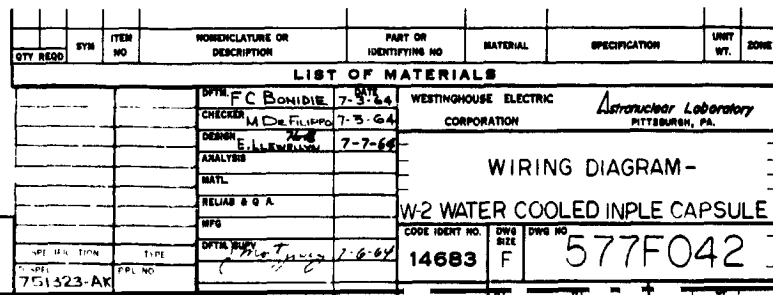 QTY REQD SYM ITEM NO NOMENCLATURE OR DESCRIPTION PART OR IDENTIFYING NO MATERIAL SPECIFICATION UNIT WT. ZONE
LIST OF MATERIALS
DFTM. F C BONIDIE DATE 7-3-64
CHECKER M DE FILIPPO 7-3-64
DESIGN E. LLEWELLYN 7-7-64
ANALYSIS
MATL
RELIAB & Q A
MFG
DFTM. SUPV 7-6-64
SPECIFICATION TYPE
751323-AK PPL NO
WESTINGHOUSE ELECTRIC CORPORATION
Astronuclear Laboratory
PITTSBURGH, PA.
WIRING DIAGRAM-
W-2 WATER COOLED INPLE CAPSULE
CODE IDENT NO. 14683
DWG SIZE F
DWG NO 577F042